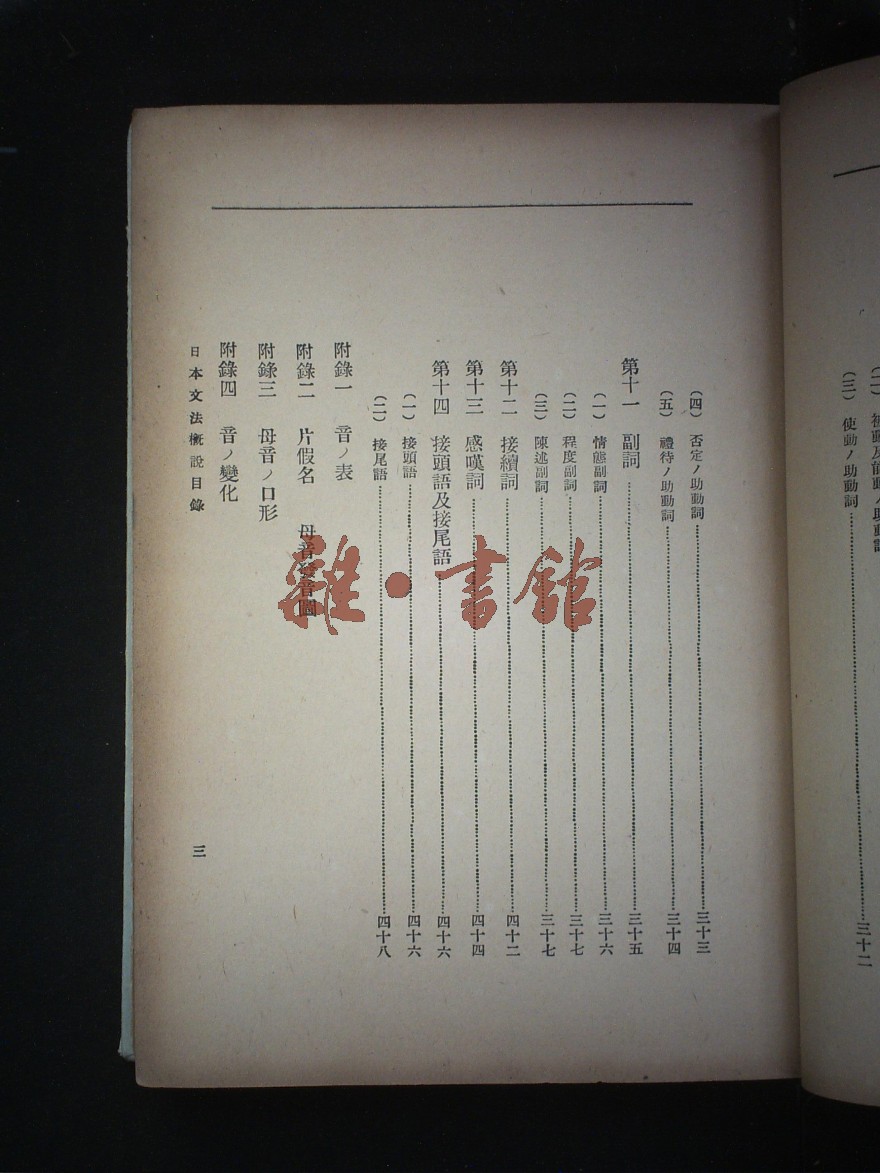 (三) 使動ノ助動詞……三十二
(四) 否定ノ助動詞……三十三
(五) 禮待ノ助動詞……三十四
第十一 副詞……三十五
(一) 情態副詞……三十六
(二) 程度副詞……三十七
(三) 陳述副詞……三十七
第十二 接續詞……四十二
第十三 感嘆詞……四十四
第十四 接頭語及接尾語……四十六
(一) 接頭語……四十六
(二) 接尾語……四十八
附錄一 音ノ表
附錄二 片假名 母音發音圖
附錄三 母音ノ口形
附錄四 音ノ變化
日本文法概說目錄 三
雜·書館